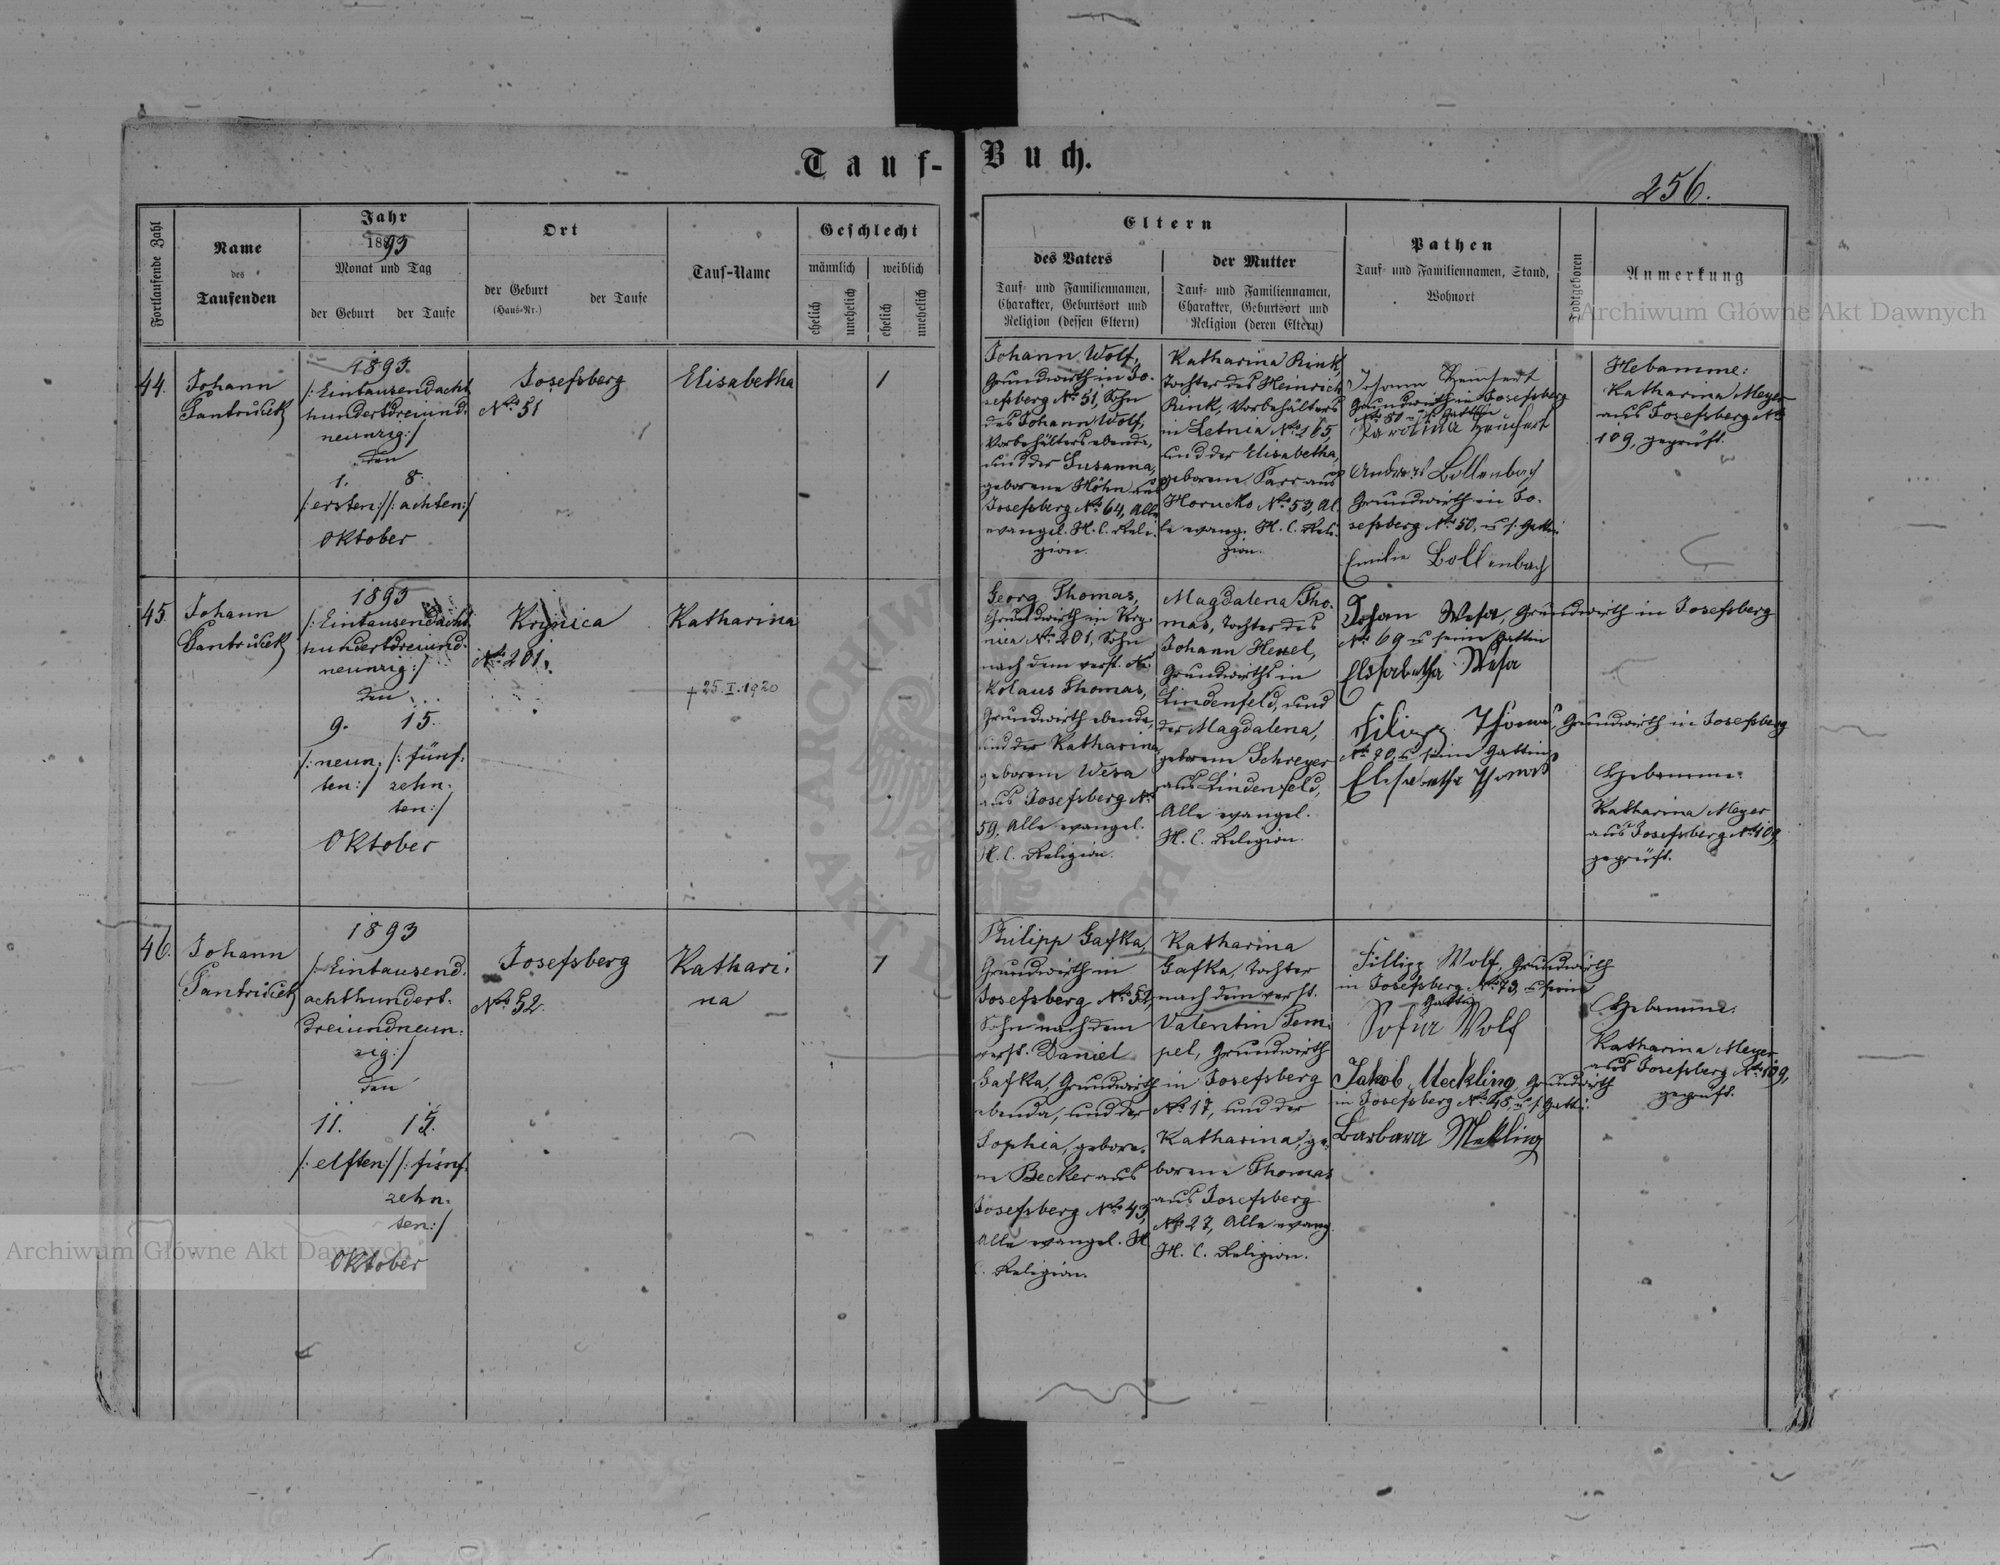 Tauf-Buch.
256.
Fortlaufende Zahl
Name
des
Taufenden
Jahr
1893
Monat und Tag
der Geburt der Taufe
Ort
der Geburt
(Haus-Nr.)
der Taufe
Tauf-Name
Geschlecht
männlich weiblich
ehelich unehelich ehelich unehelich
Eltern
des Vaters
Tauf- und Familiennamen,
Charakter, Geburtsort und
Religion (dessen Eltern)
der Mutter
Tauf- und Familiennamen,
Charakter, Geburtsort und
Religion (deren Eltern)
Pathen
Tauf- und Familiennamen, Stand,
Wohnort
Todtgeboren
Anmerkung
44.
Johann
1893
/: Eintausendacht
hundertdreiund-
neunzig :/
den
1. 8.
/: ersten :/ /: achten :/
Oktober
Josefsberg
No 51
Elisabetha
1
Johann Wolf,
Grundwirth in Jo-
sefsberg No 51, Sohn
des Johann Wolf,
Vorbehälters ebenda,
und der Susanna,
geborene Höhn aus
Josefsberg No 64, Alle
evangel. H. C. Reli-
gion.
Katharina Rink,
Tochter des Heinrich
Rink, Vorbehälters
in Letnia No 165,
und der Elisabetha,
geborene aus
Horucko No 53, Al-
le evang. H. C. Reli-
gion.
Johann
Grundwirth in Josefsberg
Gattin
Karolina
Andreas Bollenbach
Grundwirth in Jo-
sefsberg No 50, u. s. Gattin
Emilie Bollenbach
Hebamme:
Katharina Meyer
aus Josefsberg No
109, geprüft.
45.
Johann
1893
/: Eintausendacht
hundertdreiund-
neunzig :/
den
9. 15.
/: neun- /: fünf-
ten :/ zehn-
ten :/
Oktober
Krynica
No 201.
Katharina
† 25. I. 1920
Georg Thomas,
Grundwirth in Kry-
nica No 201, Sohn
nach dem verst. Ni-
kolaus Thomas,
Grundwirth ebenda,
und der Katharina,
geborene Wesa
aus Josefsberg No
59, Alle evangel.
H. C. Religion.
Magdalena Tho-
mas, Tochter des
Johann Hexel,
Grundwirths in
Lindenfeld, und
der Magdalena,
geborene Schreyer
aus Lindenfeld,
Alle evangel.
H. C. Religion.
Johan Wesa, Grundwirth in Josefsberg
No 69 u seine Gattin
Elisabetha Wesa
Filipp Thomas, Grundwirth in Josefsberg
u seine Gattin
Elisabetha Thomas
Hebamme:
Katharina Meyer
aus Josefsberg No 109,
geprüft.
46.
Johann
1893
/: Eintausend-
achthundert-
dreiundneun-
zig :/
den
11. 15.
/: elften :/ /: fünf-
zehn-
ten :/
Oktober
Josefsberg
No 52.
Kathari-
na
1
Philipp Gafka,
Grundwirth in
Josefsberg No 52,
Sohn nach dem
verst. Daniel
Gafka, Grundwirth
ebenda, und der
Sophia, gebore-
ne Becker aus
Josefsberg No 43,
Alle evangel. H.
C. Religion.
Katharina
Gafka, Tochter
nach dem verst.
Valentin Tem-
pel, Grundwirth
in Josefsberg
No 17, und der
Katharina, ge-
borene Thomas
aus Josefsberg
No 27, Alle evang.
H. C. Religion.
Fillipp Wolf, Grundwirth
in Josefsberg No 73, u seine
Gattin
Sofia Wolf
Jakob Meckling, Grundwirth
in Josefsberg No 48, u. s. Gattin:
Barbara Mekling
Hebamme:
Katharina Meyer
aus Josefsberg No 109,
geprüft.
Archiwum Główne Akt Dawnych
Archiwum Główne Akt Dawnych